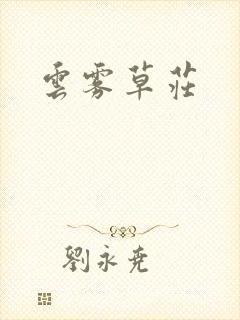 雲霧草莊
劉永堯